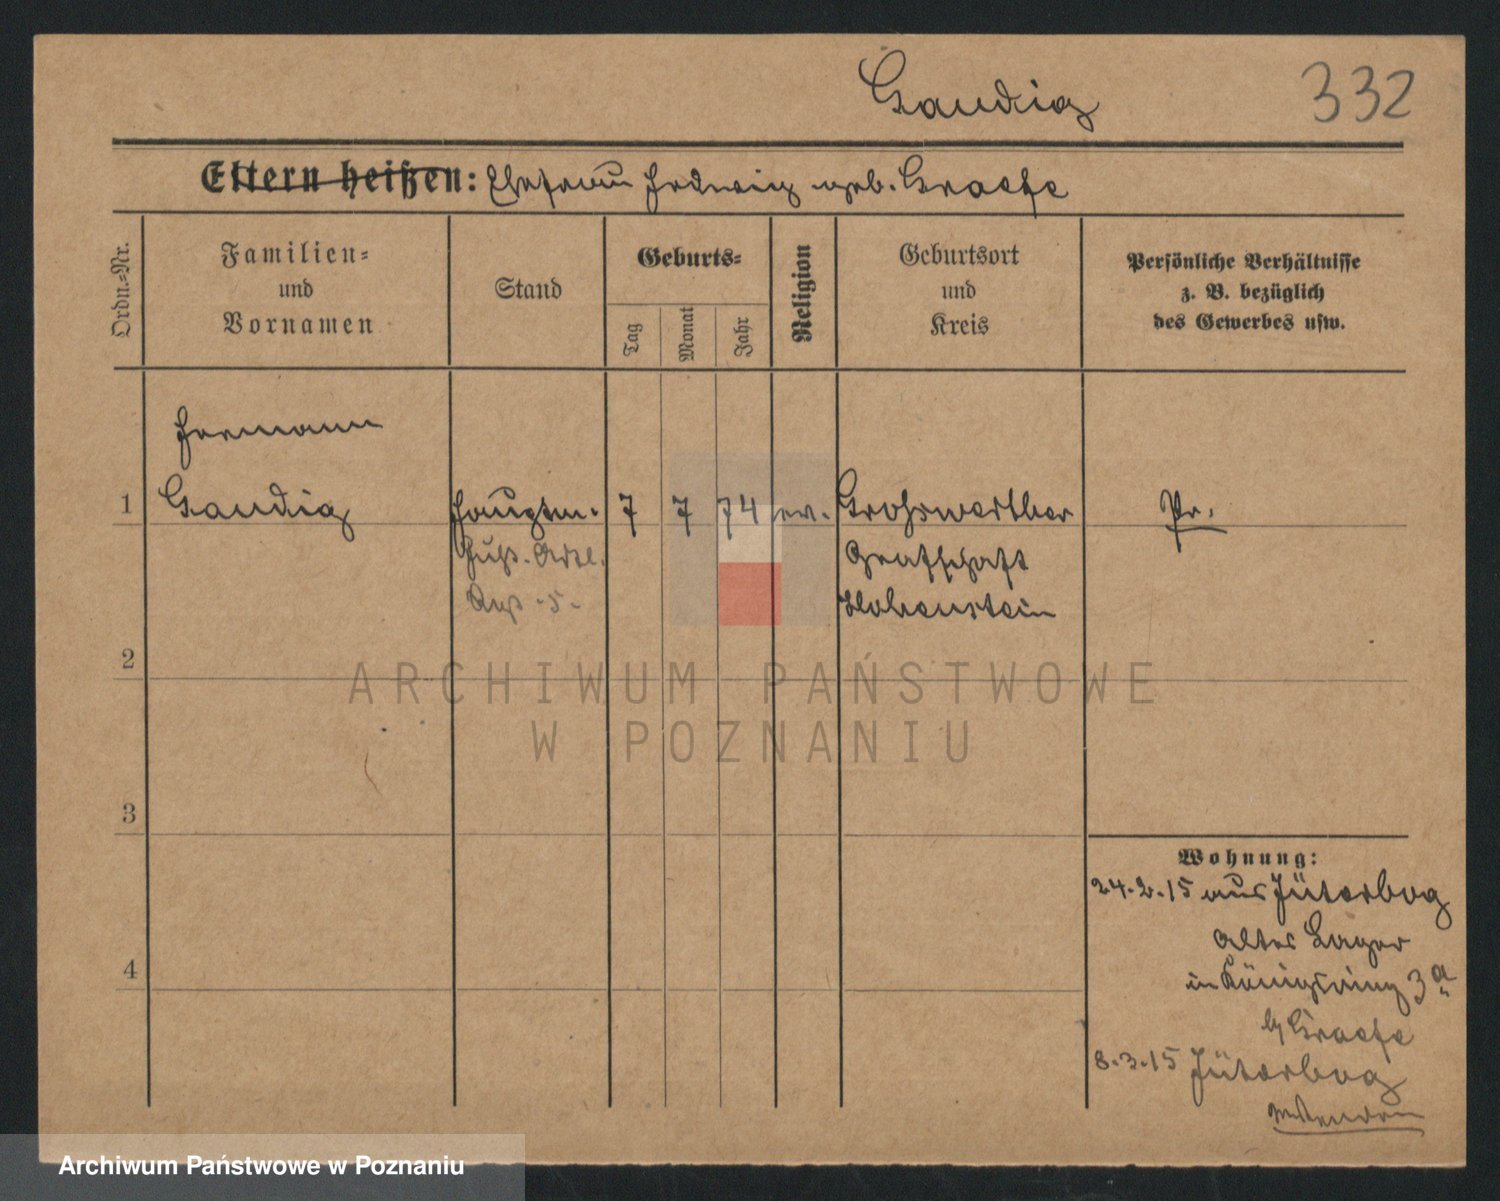 Gaudig 332
Eltern heißen: Ehefrau Hedwig geb. Graefe
Ordn.-Nr.
Familien-
und
Vornamen
Stand
Geburts-
Tag
Monat
Jahr
Religion
Geburtsort
und
Kreis
Persönliche Verhältnisse
z. B. bezüglich
des Gewerbes usw.
Hermann
1 Gaudig Hauptm. 7 7 74 ev. Grosswerther Pr.
Fuß. Artl. Grafschaft
Rgt. 5. Hohenstein
2
3
4
Wohnung:
24.2.15 aus Jüterbog
altes Lager
in Königsring 3a
b/ Graefe
8.3.15 Jüterbog
ARCHIWUM PAŃSTWOWE
W POZNANIU
Archiwum Państwowe w Poznaniu